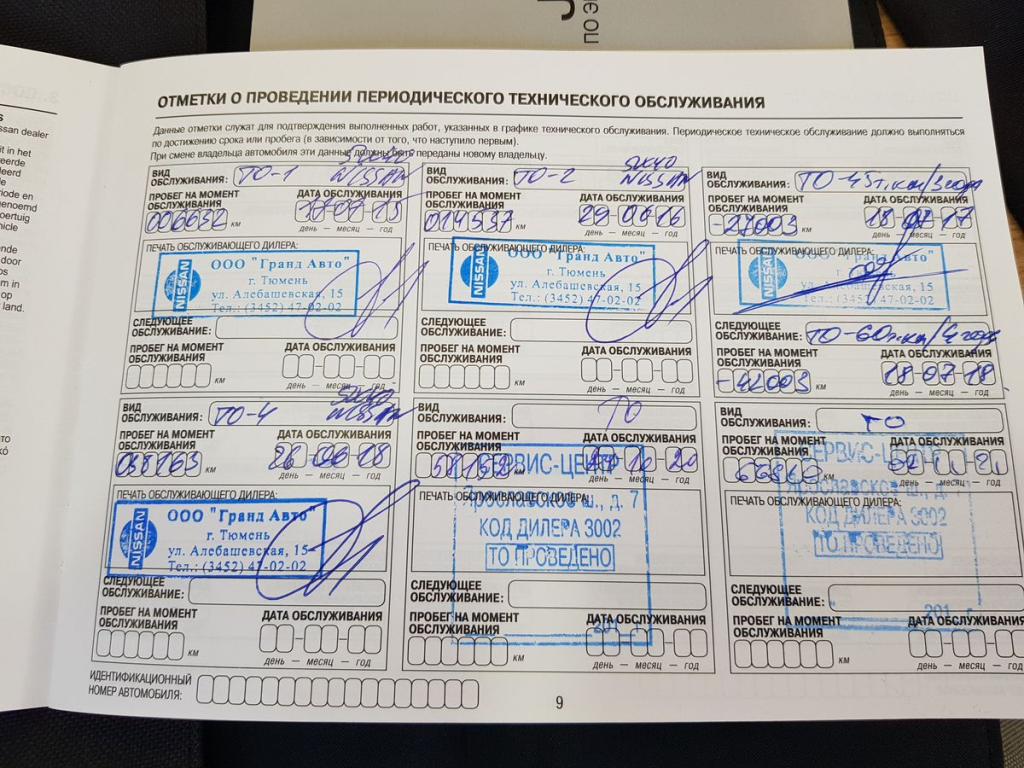 ПО Э
s
ssan dealer
it in het
eerde
leerd
riode en
genoemd
oertuig
hicle
ande
door
os
m in
op
r land.
ОТМЕТКИ О ПРОВЕДЕНИИ ПЕРИОДИЧЕСКОГО ТЕХНИЧЕСКОГО ОБСЛУЖИВАНИЯ
Данные отметки служат для подтверждения выполненных работ, указанных в графике технического обслуживания. Периодическое техническое обслуживание должно выполняться
по достижению срока или пробега (в зависимости от того, что наступило первым).
При смене владельца автомобиля эти данные должны быть переданы новому владельцу.
ВИД ОБСЛУЖИВАНИЯ: ТО-1 NISSAN
ПРОБЕГ НА МОМЕНТ ОБСЛУЖИВАНИЯ ДАТА ОБСЛУЖИВАНИЯ
006632 км
день — месяц — год
ПЕЧАТЬ ОБСЛУЖИВАЮЩЕГО ДИЛЕРА:
NISSAN
ООО "Гранд Авто"
г. Тюмень
ул. Алебашевская, 15
Тел.: (3452) 47-02-02
СЛЕДУЮЩЕЕ ОБСЛУЖИВАНИЕ:
ПРОБЕГ НА МОМЕНТ ОБСЛУЖИВАНИЯ ДАТА ОБСЛУЖИВАНИЯ
км
день — месяц — год
ВИД ОБСЛУЖИВАНИЯ: ТО-2 NISSAN
ПРОБЕГ НА МОМЕНТ ОБСЛУЖИВАНИЯ ДАТА ОБСЛУЖИВАНИЯ
014537 км
день — месяц — год
ПЕЧАТЬ ОБСЛУЖИВАЮЩЕГО ДИЛЕРА:
NISSAN
ООО "Гранд Авто"
г. Тюмень
ул. Алебашевская, 15
Тел.: (3452) 47-02-02
СЛЕДУЮЩЕЕ ОБСЛУЖИВАНИЕ:
ПРОБЕГ НА МОМЕНТ ОБСЛУЖИВАНИЯ ДАТА ОБСЛУЖИВАНИЯ
км
день — месяц — год
ВИД ОБСЛУЖИВАНИЯ: ТО-45т.км/3года
ПРОБЕГ НА МОМЕНТ ОБСЛУЖИВАНИЯ ДАТА ОБСЛУЖИВАНИЯ
-27003 км 18-07-17
день — месяц — год
ПЕЧАТЬ ОБСЛУЖИВАЮЩЕГО ДИЛЕРА:
NISSAN
ООО "Гранд Авто"
г. Тюмень
ул. Алебашевская, 15
Тел.: (3452) 47-02-02
СЛЕДУЮЩЕЕ ОБСЛУЖИВАНИЕ: ТО-60т.км/4года
ПРОБЕГ НА МОМЕНТ ОБСЛУЖИВАНИЯ ДАТА ОБСЛУЖИВАНИЯ
-42003 км 18-07-18
день — месяц — год
ВИД ОБСЛУЖИВАНИЯ: ТО-4 NISSAN
ПРОБЕГ НА МОМЕНТ ОБСЛУЖИВАНИЯ ДАТА ОБСЛУЖИВАНИЯ
038163 км 26-06-18
день — месяц — год
ПЕЧАТЬ ОБСЛУЖИВАЮЩЕГО ДИЛЕРА:
NISSAN
ООО "Гранд Авто"
г. Тюмень
ул. Алебашевская, 15
Тел.: (3452) 47-02-02
СЛЕДУЮЩЕЕ ОБСЛУЖИВАНИЕ:
ПРОБЕГ НА МОМЕНТ ОБСЛУЖИВАНИЯ ДАТА ОБСЛУЖИВАНИЯ
км
день — месяц — год
ВИД ОБСЛУЖИВАНИЯ: ТО
ПРОБЕГ НА МОМЕНТ ОБСЛУЖИВАНИЯ ДАТА ОБСЛУЖИВАНИЯ
СЕРВИС-ЦЕНТР
ПЕЧАТЬ ОБСЛУЖИВАЮЩЕГО ДИЛЕРА:
Ярославское ш., д. 7
КОД ДИЛЕРА 3002
ТО ПРОВЕДЕНО
СЛЕДУЮЩЕЕ ОБСЛУЖИВАНИЕ:
ПРОБЕГ НА МОМЕНТ ОБСЛУЖИВАНИЯ ДАТА ОБСЛУЖИВАНИЯ
201
км
день — месяц — год
ВИД ОБСЛУЖИВАНИЯ: ТО
ПРОБЕГ НА МОМЕНТ ОБСЛУЖИВАНИЯ ДАТА ОБСЛУЖИВАНИЯ
СЕРВИС-ЦЕНТР
ПЕЧАТЬ ОБСЛУЖИВАЮЩЕГО ДИЛЕРА:
Ярославское ш., д. 7
КОД ДИЛЕРА 3002
ТО ПРОВЕДЕНО
СЛЕДУЮЩЕЕ ОБСЛУЖИВАНИЕ:
201 г
ПРОБЕГ НА МОМЕНТ ОБСЛУЖИВАНИЯ ДАТА ОБСЛУЖИВАНИЯ
км
день — месяц — год
ИДЕНТИФИКАЦИОННЫЙ
НОМЕР АВТОМОБИЛЯ:
9